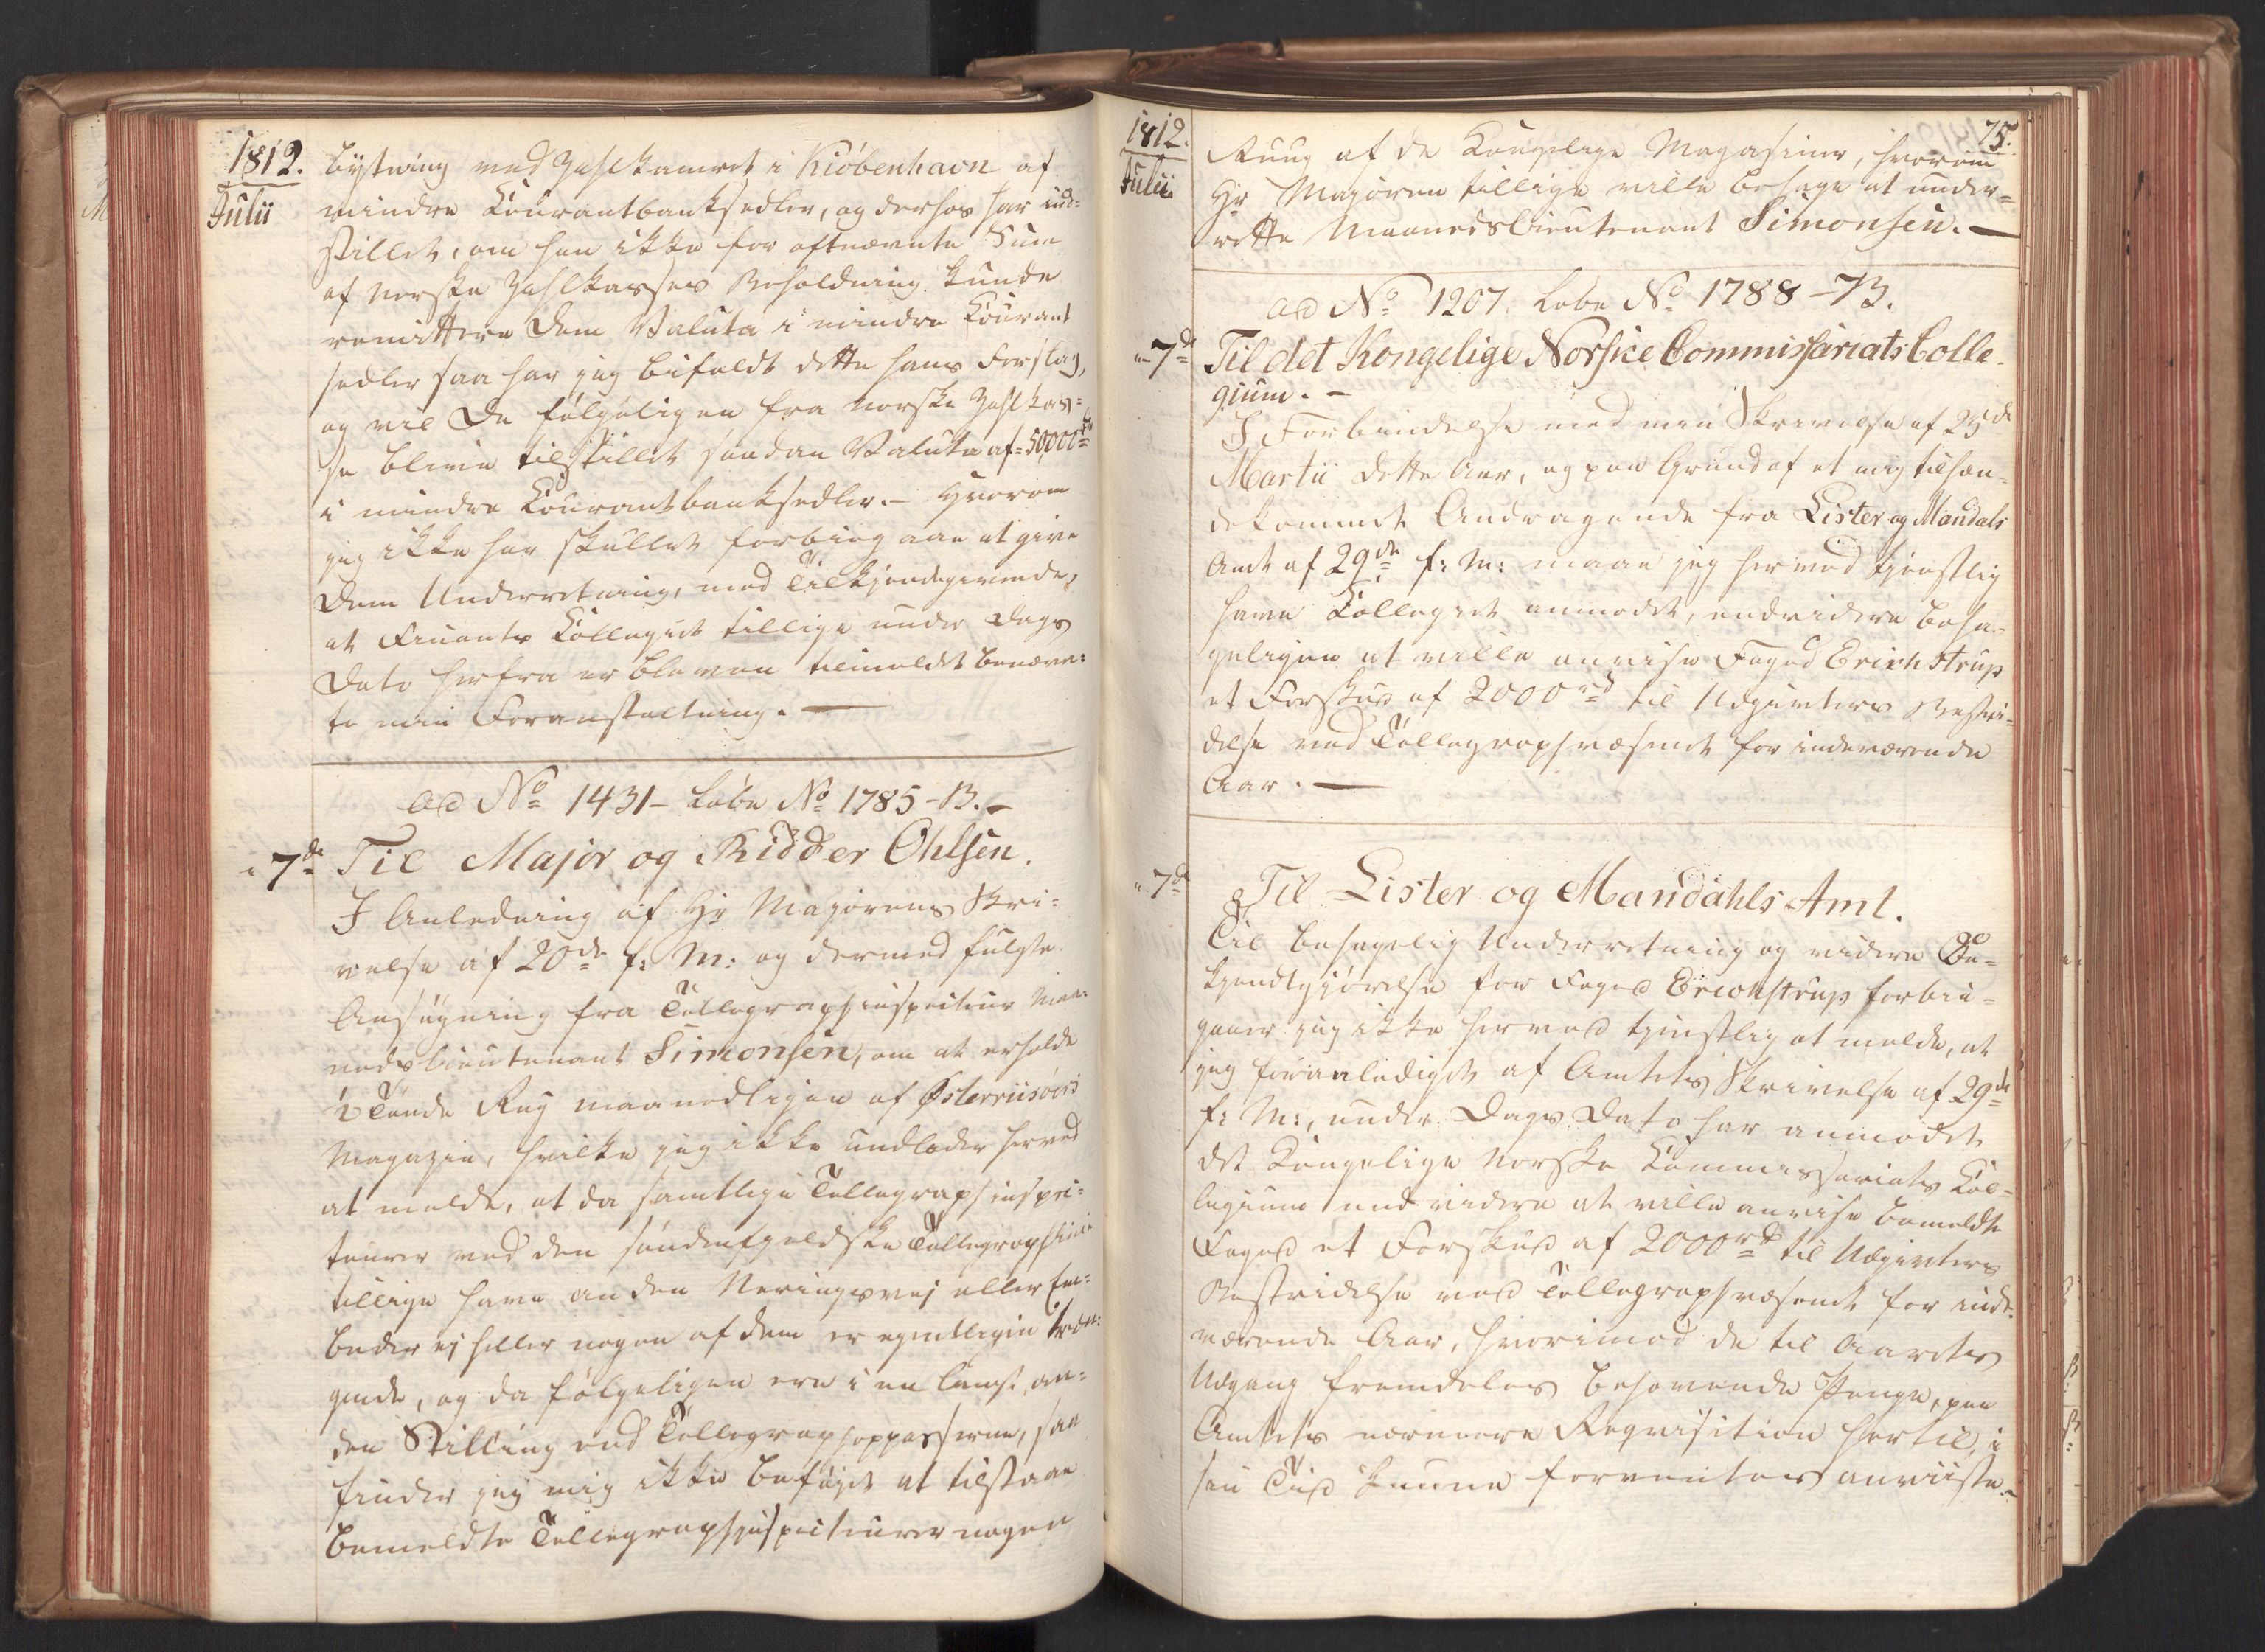 1812.
Julii
bytning med Zahlkamret i Kiöbenhavn af
mindre Courantbanksedler, og derhos har ind=
stillet, om han ikke for oftnævnte Sum
af norske Zahlkasses Beholdning kunde
remittere Dem Valuta i mindre Courant
sedler saa har jeg bifaldt dette hans Forslag,
og vil De følgeligen fra norske Zahlkas=
se blive tilstillet saadan Valuta af 50,000 rd
i mindre Courantbanksedler. – Hvorom
jeg ikke har skullet forbigaae at give
Dem Underretning, med Tilkjendegivende,
at Finants Collegiet tillige under Dags
Dato herfra er bleven tilmeldt benævn=
te min Foranstaltning. —
ad No 1431 – Löbe No 1785 – B. –
7de Til Major og Ridder Ohlsen.
I Anledning af Hr Majorens Skri=
velse af 20de f: M: og dermed fulgte
Ansögning fra Tellegraphinspecteur Maa=
nedslieutenant Simonsen, om at erholde
1/2 Tönde Rug maanedligen af Østerriisöers
Magazin, hvilke jeg ikke undlader herved
at melde, at da samtlige Tellegraphinspec=
teurer ved den söndenfjeldske Tellegraphlinie
tillige have anden Næringsvej eller Em=
beder ej heller nogen af dem er egentligen træn=
gende, og da følgeligen ere i en langt an=
den Stilling end Tellegraphoppasserne, saa
finder jeg mig ikke beföjet at tilstaae
bemeldte Tellegraphinspecteurer nogen
1812.
Julii
75.
Rug af de Kongelige Magasiner, hvorom
Hr Majoren tillige ville behage at under=
rette Maanedslieutenant Simonsen. —
ad No 1207. Löbe No 1788 – B.
7de Til det Kongelige Norske Commissariats Colle=
gium. –
I Forbindelse med min Skrivelse af 25de
Martii dette Aar, og paa Grund af et mig tilhæn=
dekommet Andragende fra Lister og Mandals
Amt af 29de f: M: maae jeg herved tjenstlig
have Collegiet anmodet, endvidere beha=
geligen at ville anvise Foged Erichstrup
et Forskud af 2000 rd til Udgivters Bestri=
delse ved Tellegraphvæsenet for indeværende
Aar. —
7de Til Lister og Mandahls Amt.
Til behagelig Underretning og videre Be=
kjendtgjörelse for Foged Erichstrup forbi=
gaaer jeg ikke herved tjenstlig at melde, at
jeg foranlediget af Amtets Skrivelse af 29de
f: M:, under Dags Dato har anmodet
det Kongelige norske Commissariats Col=
legium endvidere at ville anvise bemeldte
Foged et Forskud af 2000 rd til Udgivters
Bestridelse ved Tellegraphvæsenet for inde=
værende Aar, hvorimod de til Aarets
Udgang fremdeles behövende Penge, paa
Amtets nærmere Reqvisition hertil, i
sin Tid kunne forventes anviiste. –